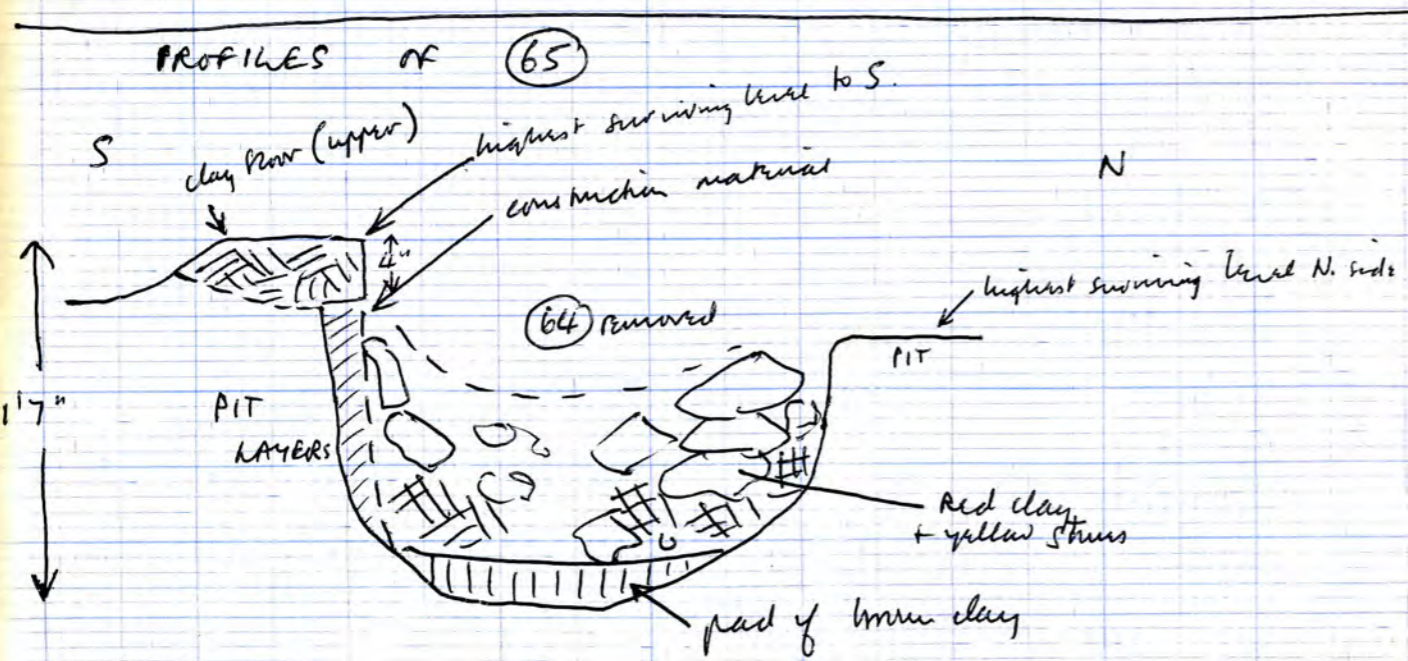 PROFILES OF 65
S
clay floor (upper)
highest surviving level to S.
construction material
N
4"
highest surviving level N. side
64 removed
PIT
1'7"
PIT
LAYERS
Red clay
+ yellow stones
pad of brown clay